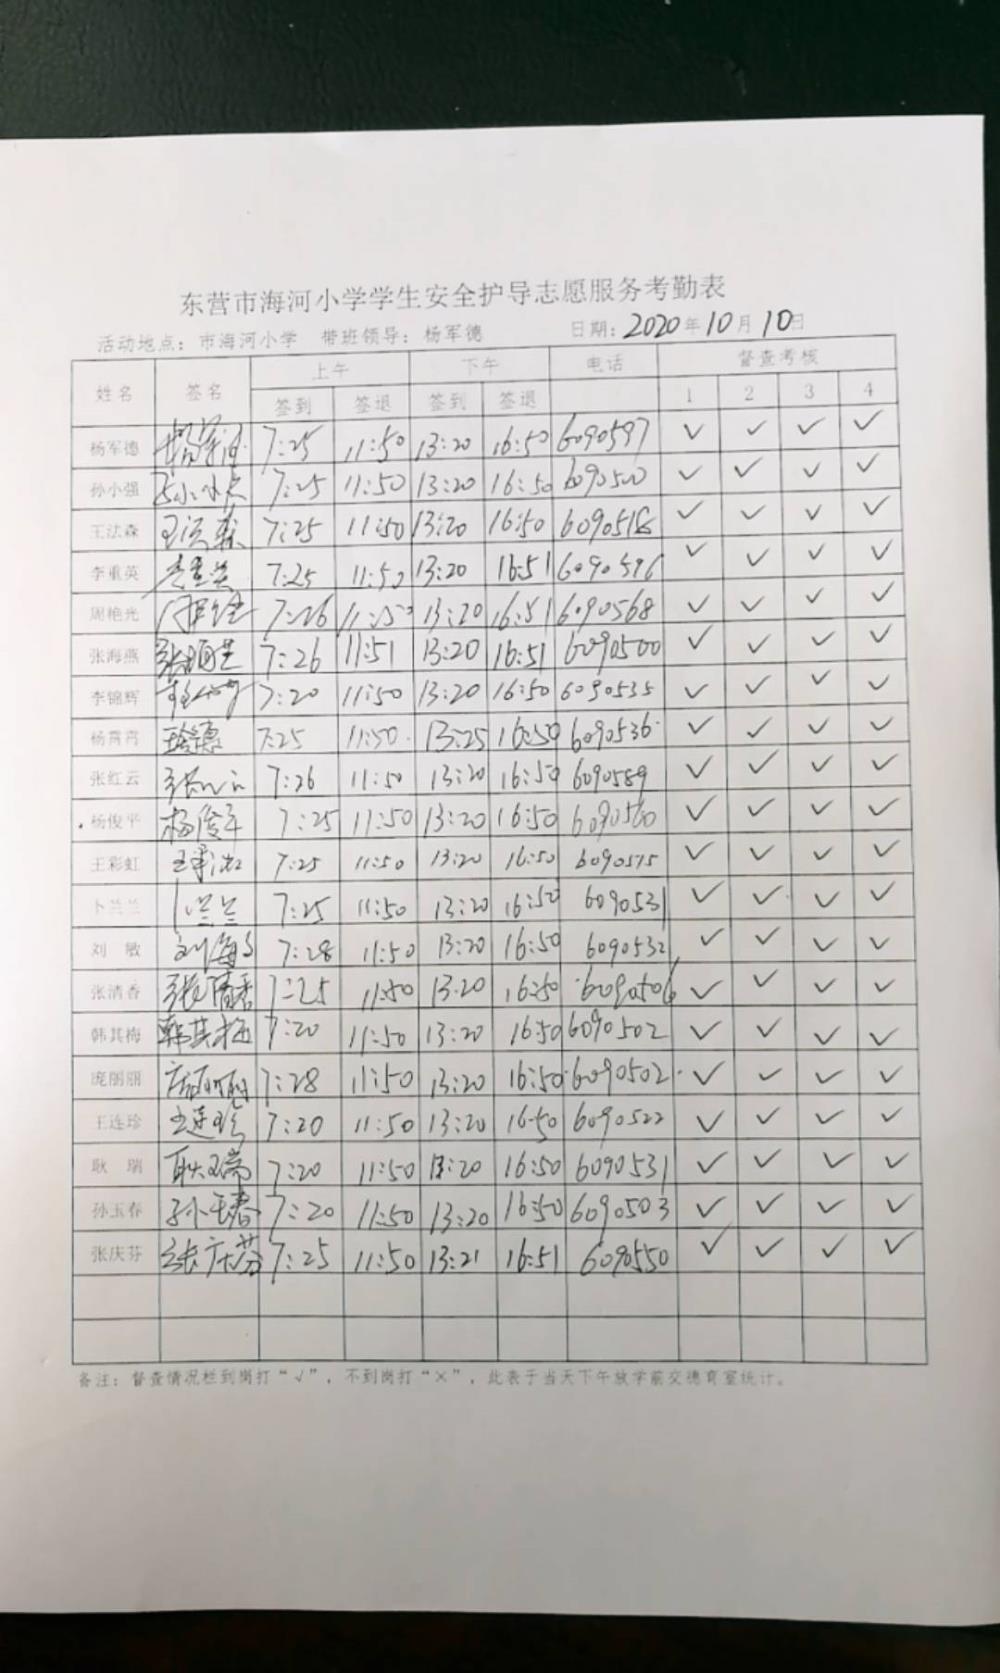 东营市海河小学学生安全护导志愿服务考勤表
活动地点：市海河小学 带班领导：杨军德 日期：2020年10月10日
姓名 签名 上午 下午 电话 督查考核
签到 签退 签到 签退 1 2 3 4
杨军德 7:25 11:50 13:20 16:50 6090597 ✓ ✓ ✓ ✓
孙小强 7:25 11:50 13:20 16:50 6090500 ✓ ✓ ✓ ✓
王法森 王法森 7:25 11:50 13:20 16:50 6090518 ✓ ✓ ✓ ✓
李重英 李重英 7:25 11:50 13:20 16:51 6090596 ✓ ✓ ✓ ✓
周艳光 7:26 11:50 13:20 16:51 6090568 ✓ ✓ ✓ ✓
张海燕 7:26 11:51 13:20 16:51 6090500 ✓ ✓ ✓ ✓
李锦辉 7:20 11:50 13:20 16:50 6090535 ✓ ✓ ✓ ✓
杨霄霄 7:25 11:50 13:25 16:50 6090536 ✓ ✓ ✓ ✓
张红云 7:26 11:50 13:20 16:50 6090589 ✓ ✓ ✓ ✓
杨俊平 杨俊平 7:25 11:50 13:20 16:50 6090560 ✓ ✓ ✓ ✓
王彩虹 7:25 11:50 13:20 16:50 6090575 ✓ ✓ ✓ ✓
卜兰兰 卜兰兰 7:25 11:50 13:20 16:50 6090531 ✓ ✓ ✓ ✓
刘 敏 7:28 11:50 13:20 16:50 6090532 ✓ ✓ ✓ ✓
张清香 张清香 7:25 11:50 13:20 16:50 6090506 ✓ ✓ ✓ ✓
韩其梅 韩其梅 7:20 11:50 13:20 16:50 6090502 ✓ ✓ ✓ ✓
庞丽丽 庞丽丽 7:28 11:50 13:20 16:50 6090502 ✓ ✓ ✓ ✓
王连珍 王连珍 7:20 11:50 13:20 16:50 6090522 ✓ ✓ ✓ ✓
耿 瑞 耿瑞 7:20 11:50 13:20 16:50 6090531 ✓ ✓ ✓ ✓
孙玉春 孙玉春 7:20 11:50 13:20 16:50 6090503 ✓ ✓ ✓ ✓
张庆芬 张庆芬 7:25 11:50 13:21 16:51 6090550 ✓ ✓ ✓ ✓
备注：督查情况栏到岗打“√”，不到岗打“×”，此表于当天下午放学前交德育室统计。